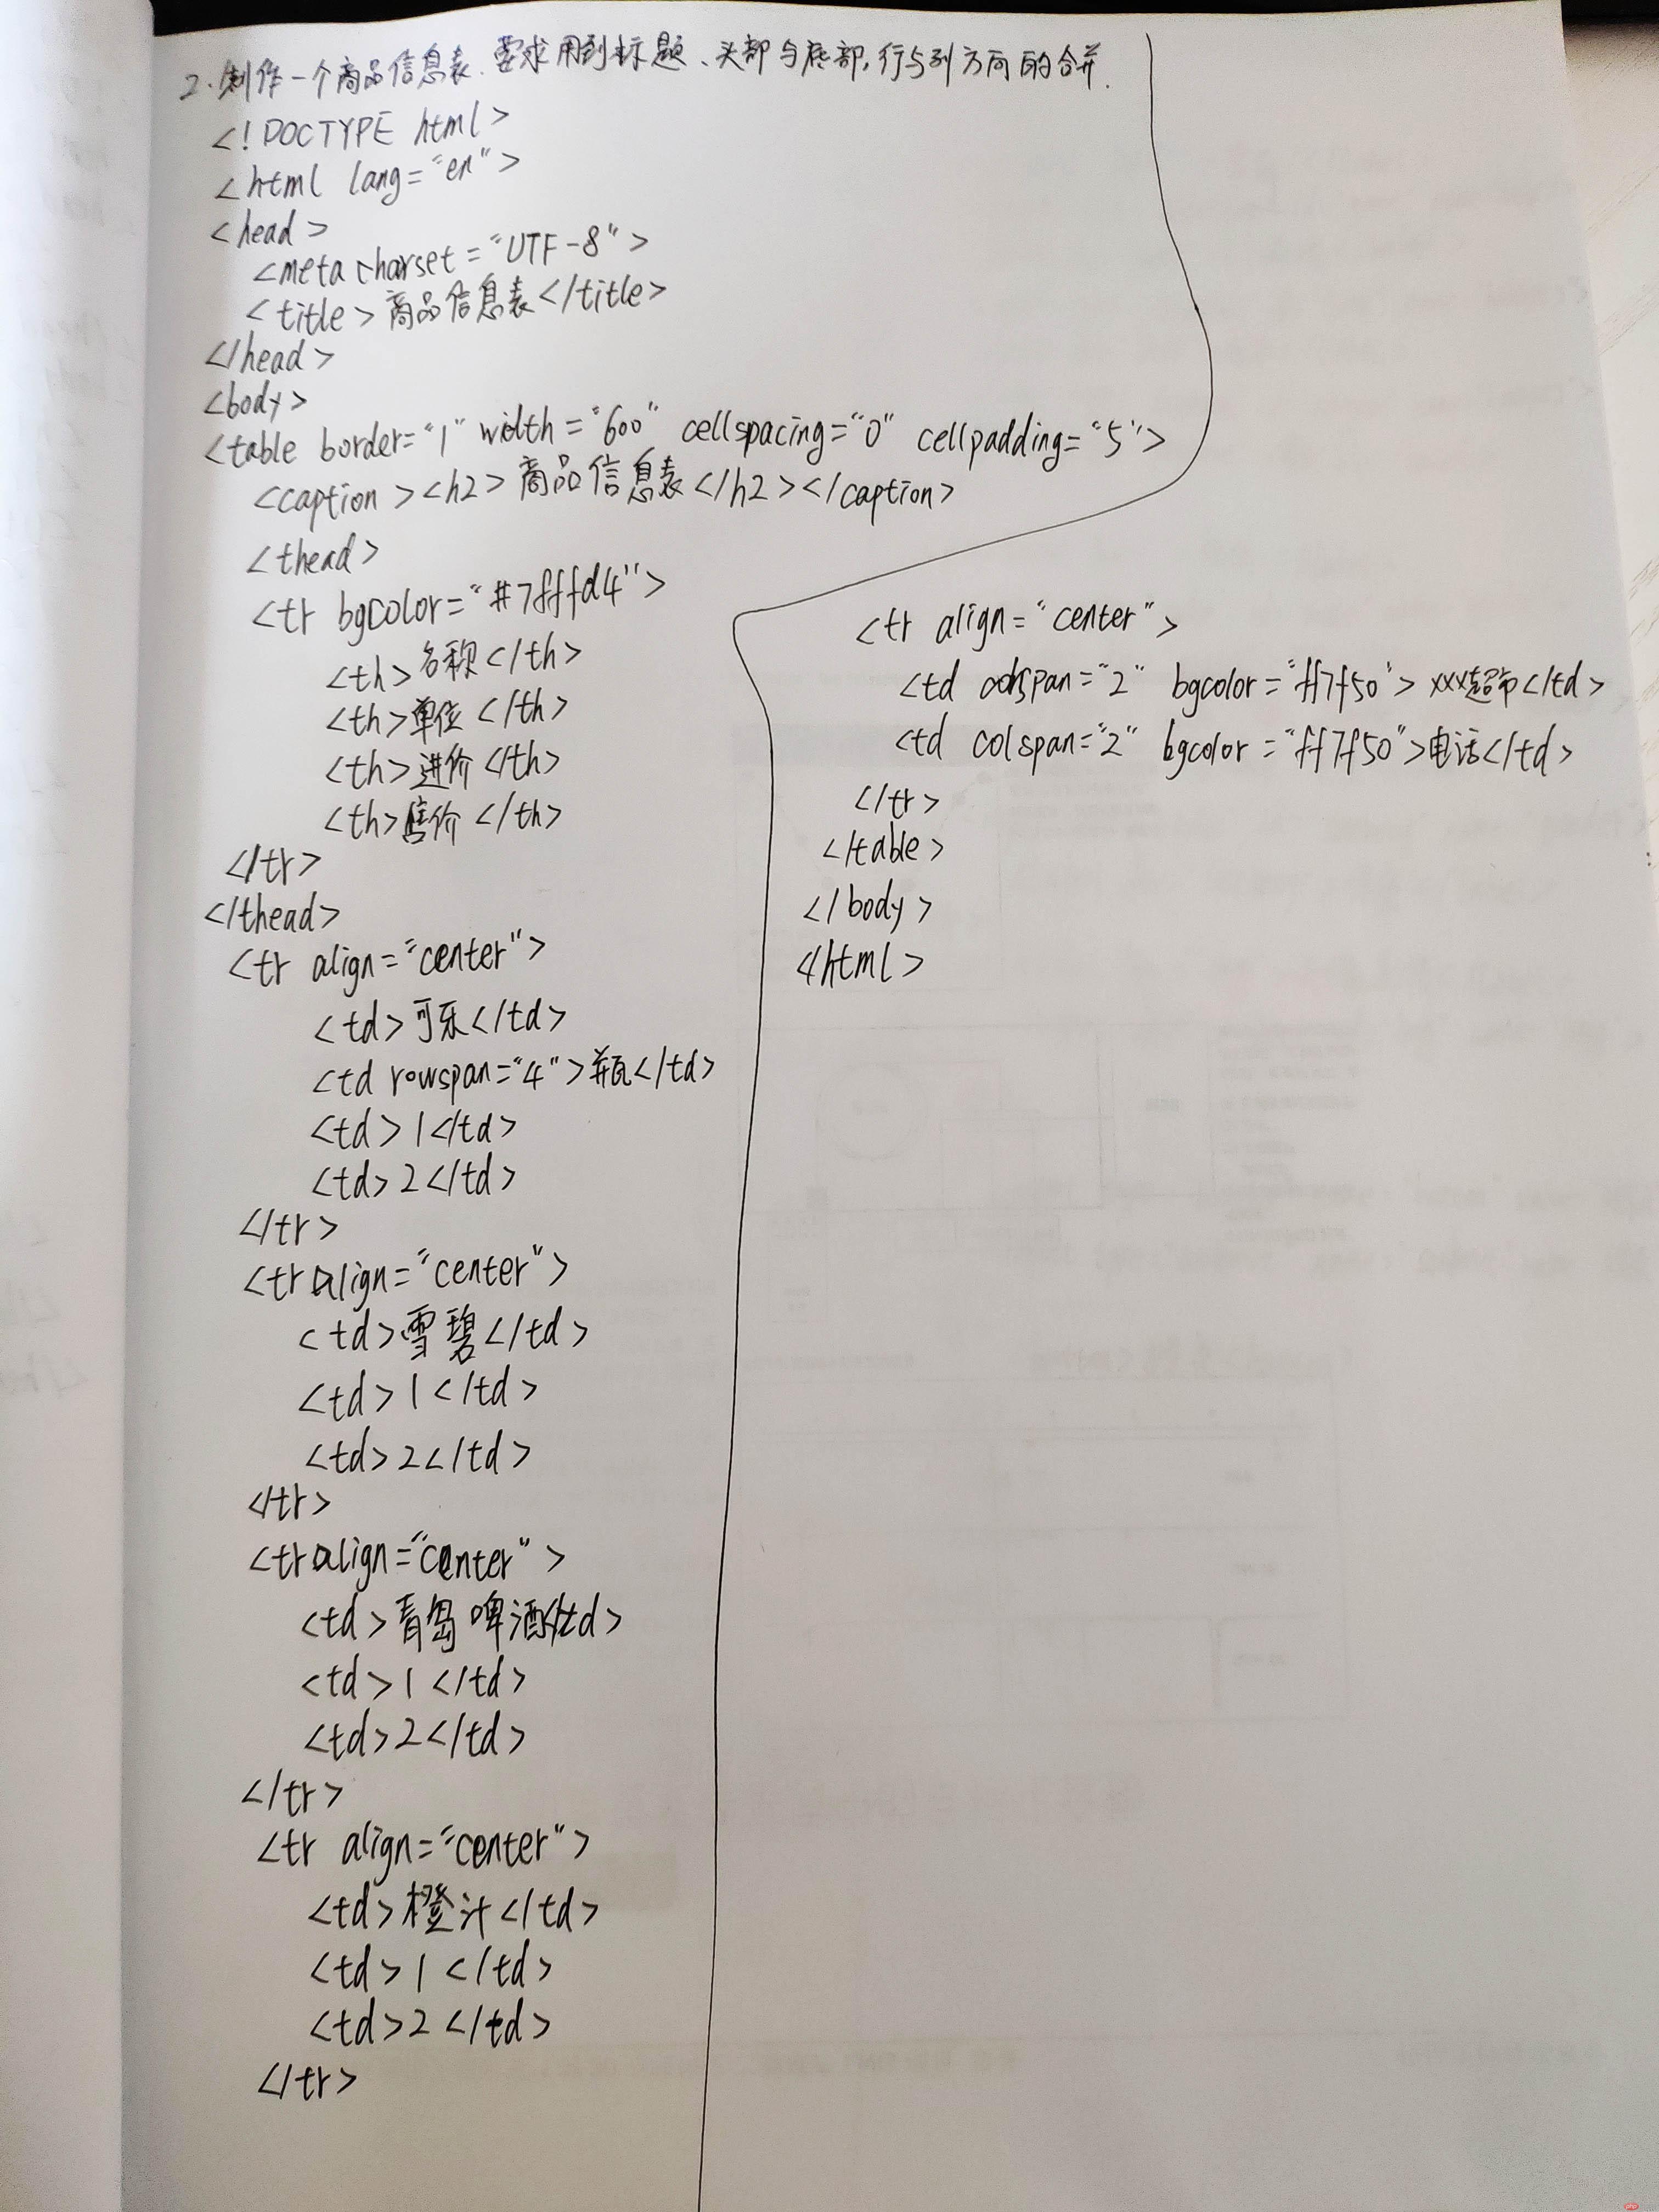 2.制作一个商品信息表.要求用到标题、头部与底部,行与列方向的合并.
<!DOCTYPE html>
<html lang="en">
<head>
<meta charset="UTF-8">
<title>商品信息表</title>
</head>
<body>
<table border="1" width="600" cellspacing="0" cellpadding="5">
<caption><h2>商品信息表</h2></caption>
<thead>
<tr bgcolor="#7fffd4">
<th>名称</th>
<th>单位</th>
<th>进价</th>
<th>售价</th>
</tr>
</thead>
<tr align="center">
<td>可乐</td>
<td rowspan="4">瓶</td>
<td>1</td>
<td>2</td>
</tr>
<tr align="center">
<td>雪碧</td>
<td>1</td>
<td>2</td>
</tr>
<tr align="center">
<td>青岛啤酒</td>
<td>1</td>
<td>2</td>
</tr>
<tr align="center">
<td>橙汁</td>
<td>1</td>
<td>2</td>
</tr>
<tr align="center">
<td colspan="2" bgcolor="ff7f50">xxx超市</td>
<td colspan="2" bgcolor="ff7f50">电话</td>
</tr>
</table>
</body>
</html>